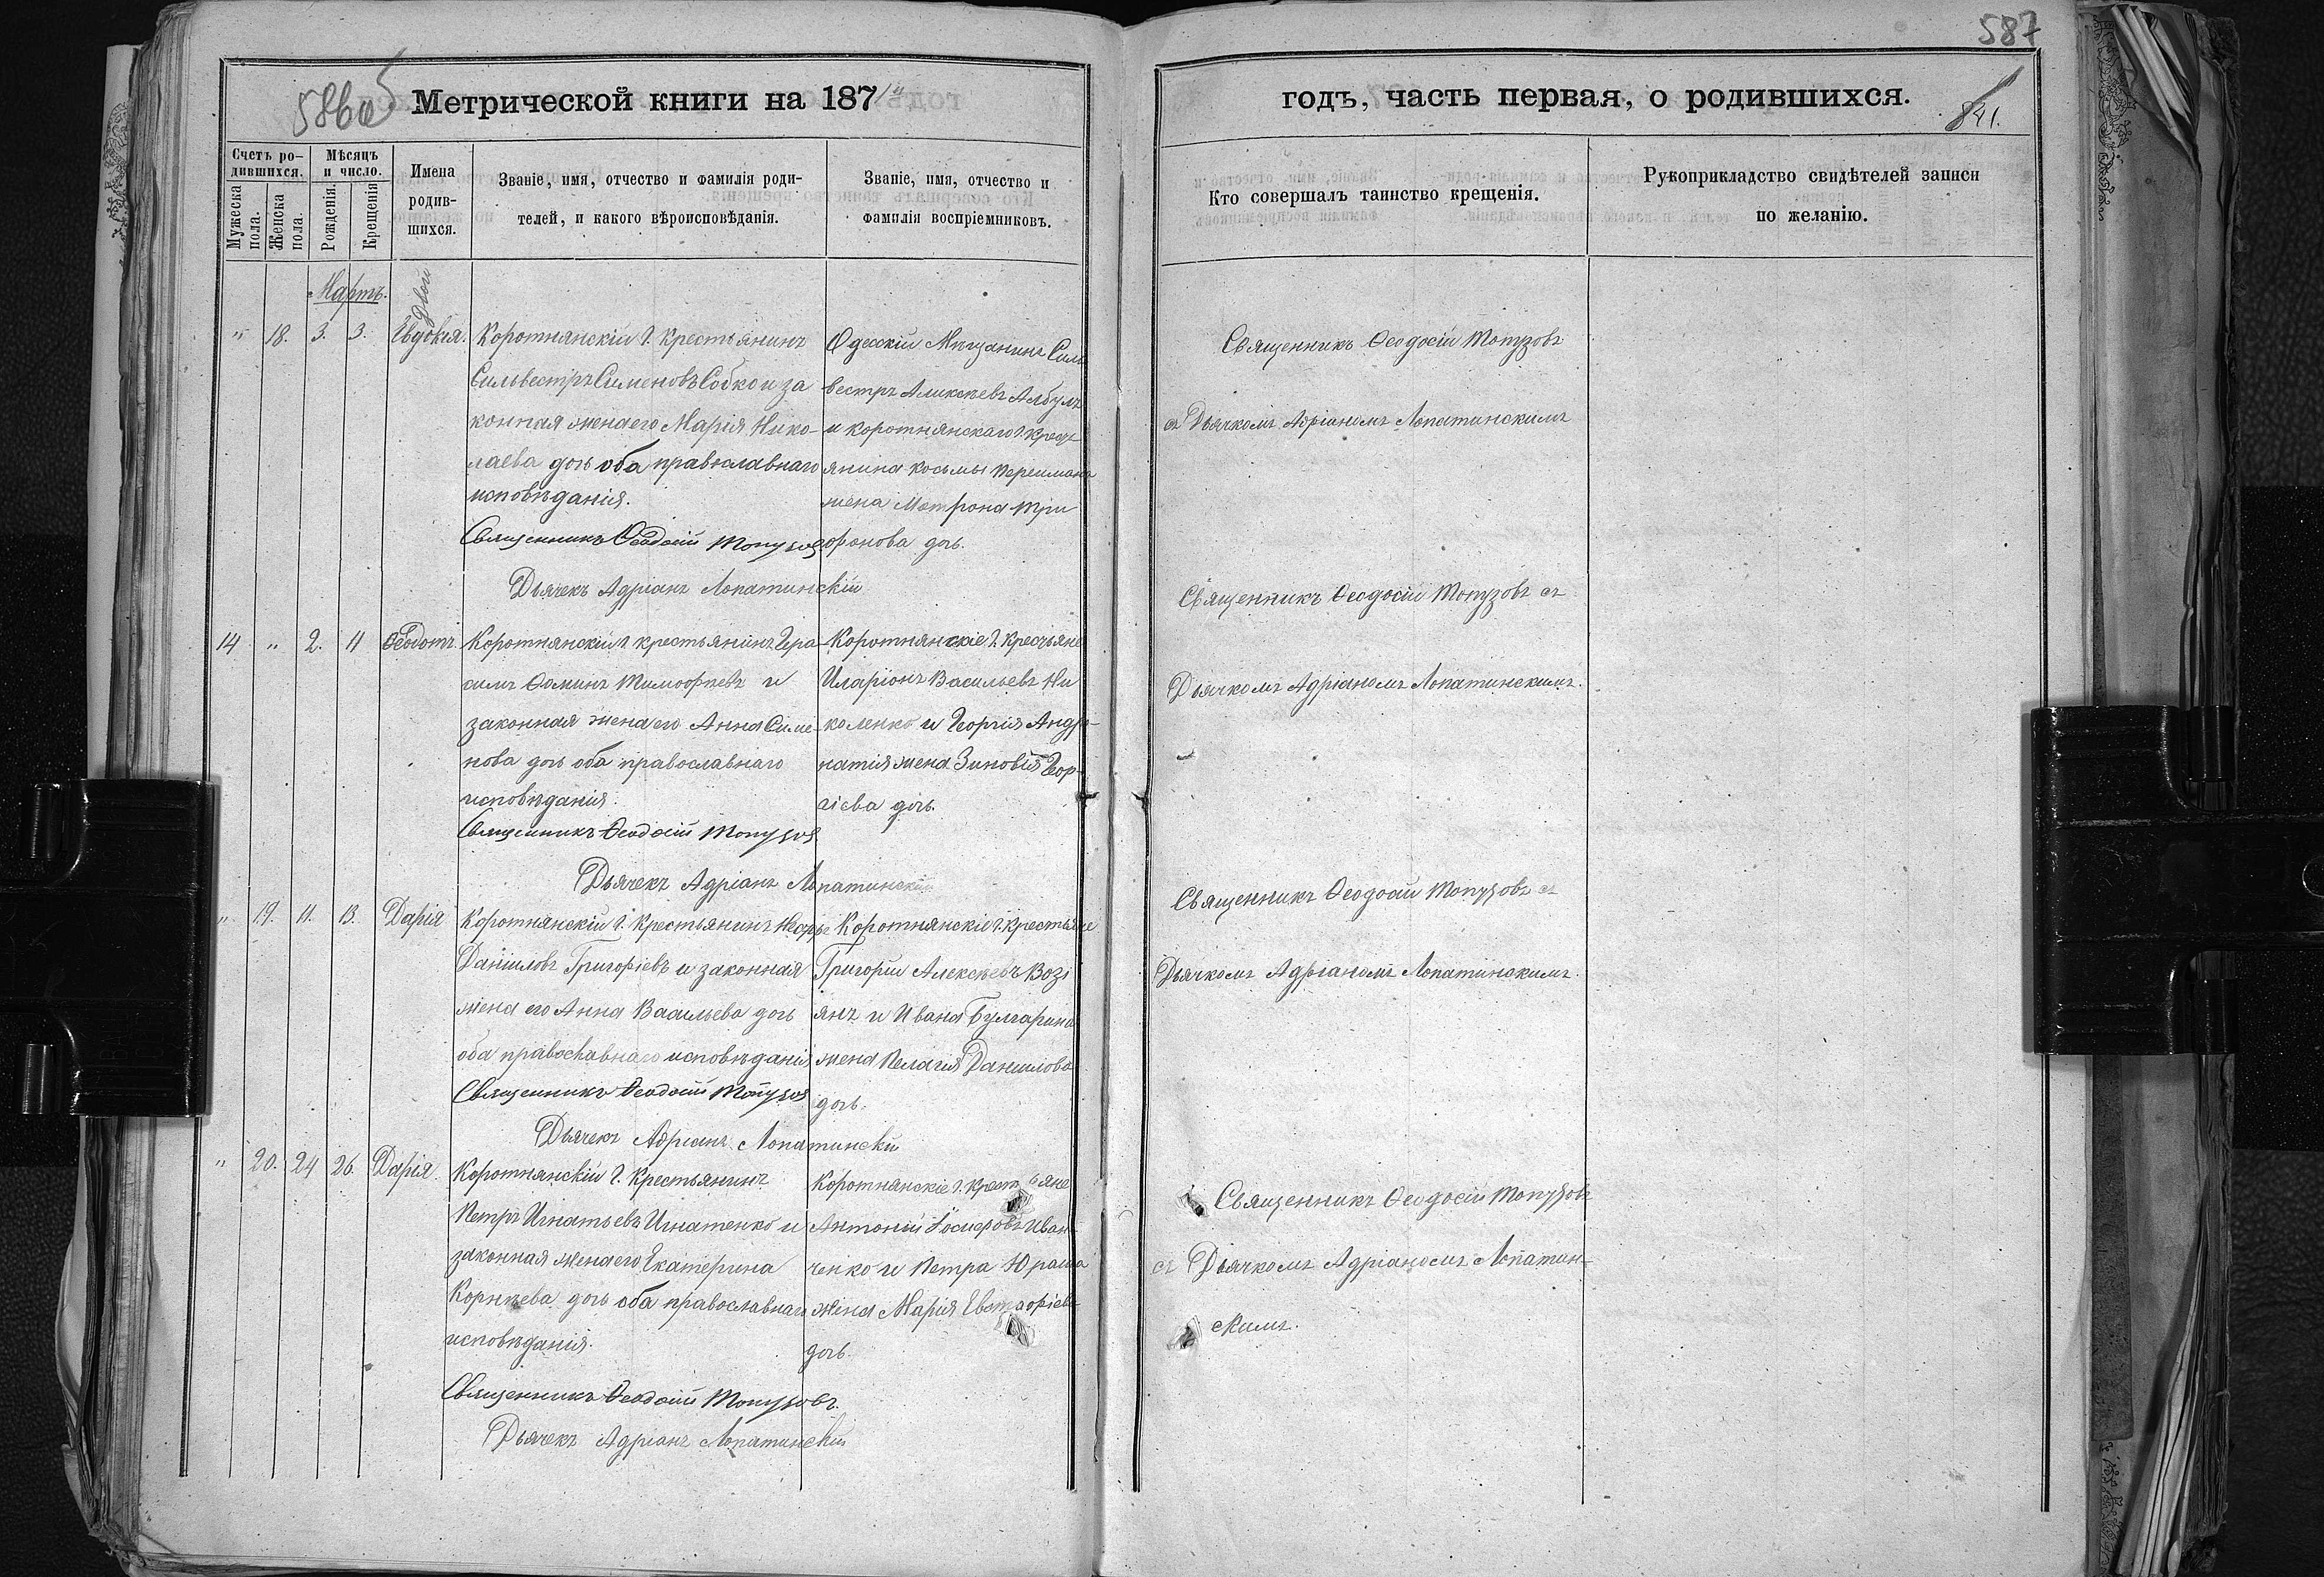 587
586об
Метрической книги на 1871й
годъ, часть первая, о родившихся.
841.
Счетъ родившихся.
Мужеска пола.
Женска пола.
Мѣсяцъ и число.
Рожденія.
Крещенія.
Имена родившихся.
Званіе, имя, отчество и фамилія роди-
телей, и какого вѣроисповѣданія.
Званіе, имя, отчество и
фамилія воспріемниковъ.
Кто совершалъ таинство крещенія.
Рукоприкладство свидѣтелей записи
по желанію.
Мартъ.
" 18. 3. 3. Евдокія.
Коротнянскій Г. Крестьянинъ
Сильвестръ Сименовъ Собко и за
конная жена его Марія Нико-
лаева дочь оба православнаго
исповѣданія.
Священникъ Ѳеодосій Топузов
Дьячекъ Адріанъ Лопатинскій
Одесскій Мѣщанинъ Силь
вестръ Аликсѣевъ Албулъ
и коротнянскаго Г. крест
янина Косьмы
жена Матрона Три
фонова дочь.
Священникъ Ѳеодосій Топузовъ
съ Дьячкомъ Адріаномъ Лопатинскимъ
14 " 2. 11 Ѳеодотъ.
Коротнянскій Г крестьянінъ Гера
симъ Ѳоминъ Тимофѣевъ и
законная жена его Анна Симе-
нова дочь оба православнаго
исповѣданія.
Священникъ Ѳеодосій Топузов
Дьячекъ Адріанъ Лопатинскій
Коротнянскіе Г. Кресчьяне
Иларіонъ Васильевъ Ни
коленко и Георгія Андро-
натія жена Зиновія Геор-
гіева дочь.
Священникъ Ѳеодосій Топузовъ съ
Дьячкомъ Адріаномъ Лопатинскимъ.
" 19. 11. 13. Дарія
Коротнянскій Г. Крестьянинъ
Даніиловъ Григоріевъ и законная
жена его Анна Васильева дочь
оба православнаго исповѣданія
Священникъ Ѳеодосій Топузов
Дьячекъ Адріанъ Лопатинскій
Коротнянскіе Г. Крестьяне
Григорій Алексѣевъ Возі
янъ и Ивана Булгарина
жена Пелагія Даниилова
дочь.
Священникъ Ѳеодосій Топузовъ съ
Дьячкомъ Адріаномъ Лопатинскимъ.
" 20. 24 26. Дарія.
Коротнянскій Г. Крестьянинъ
Петръ Игнатьевъ Игнатенко и
законная жена его Екатерина
Корнѣева дочь оба православнаго
исповѣданія.
Священникъ Ѳеодосій Топузовъ.
Дьячекъ Адріанъ Лопатинскій
Коротнянскіе Г. Крестьяне
Антоній Іосифовъ Иван-
ченко и Петра Юраша
жена Марія Евстафіева
дочь.
Священникъ Ѳеодосій Топузовъ
съ Дьячкомъ Адріаномъ Лопатин-
скимъ.